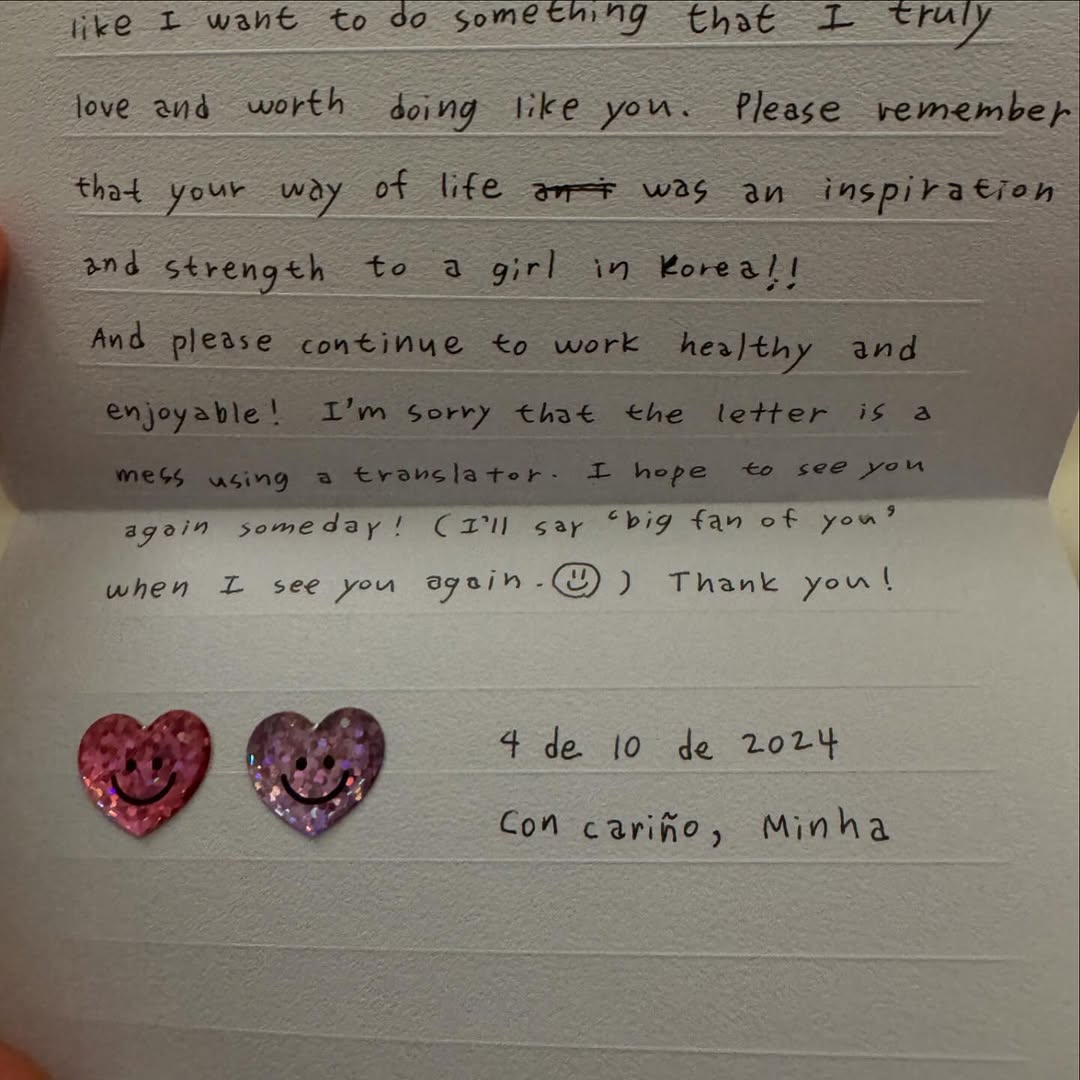 like I want to do something that I truly
love and worth doing like you. Please remember
that your way of life was an inspiration
and strength to a girl in Korea!!
And please continue to work healthy and
enjoyable! I'm sorry that the letter is a
mess using a translator. I hope to see you
again someday! (I'll say 'big fan of you'
when I see you again. ☺) Thank you!
4 de 10 de 2024
Con cariño, Minha